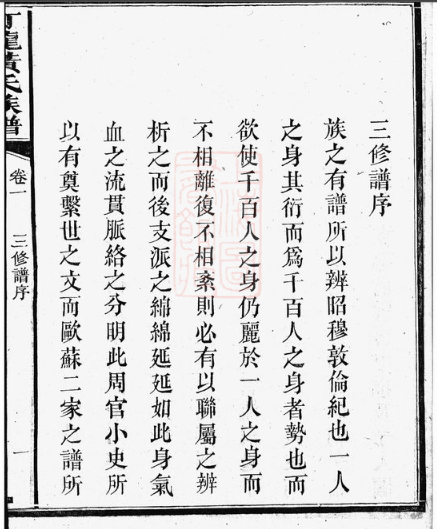 三修譜序
族之有譜所以辨昭穆敦倫紀也一人
之身其衍而爲千百人之身者勢也而
欲使千百人之身仍麗於一人之身而
不相離復不相紊則必有以聯屬之辨
析之而後支派之綿綿延延如此身氣
血之流貫脈絡之分明此周官小史所
以有奠繫世之文而歐蘇二家之譜所
龍黃氏族譜
卷一 三修譜序 一